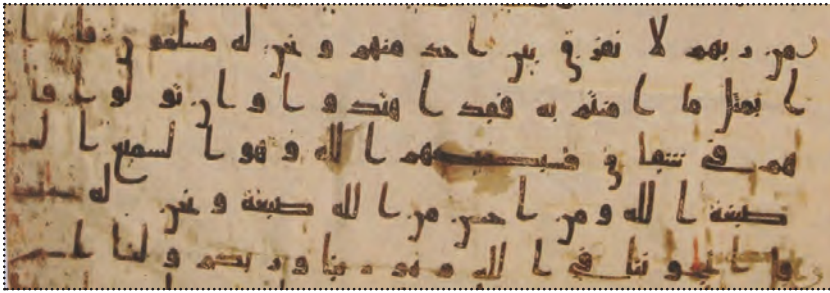 من ربهم لا نفرق بين احد منهم و نحن له مسلمون فا
ا بمثل ما امنتم به فقد اهتدوا و ان تولوا فا
هم في شقاق فسيكفيكهم الله و هو السميع
صبغة الله و من احسن من الله صبغة و نحن له
في الله و هو ربنا و ربكم و لنا